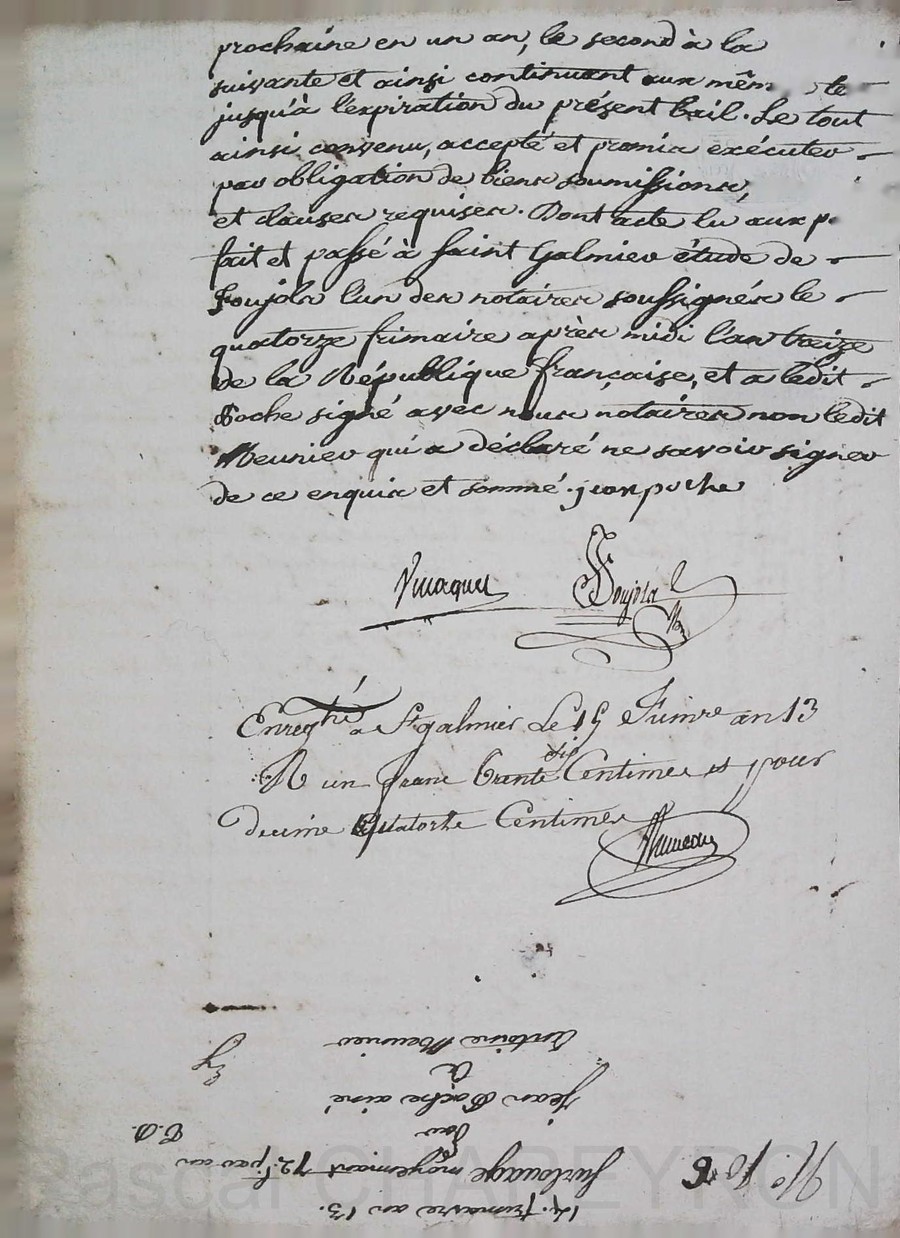 prochaine en un an, le second à la
suivante et ainsi continuant aux mêm te
jusqu'à l'expiration du présent bail. Le tout
ainsi convenu, accepté et promis exécuter
par obligation de biens soumissions,
et clauses requises. Dont acte lu aux p.
fait et passé à Saint Galmier étude de
Foujols l'un des notaires soussignés le
quatorze frimaire après midi l'an treize
de la République française, et a ledit
Poche signé avec nous notaires non ledit
Meunier qui a déclaré ne savoir signer
de ce enquis et sommé. jean poche
Foujols
Enregtré a St galmier Le 15 Frimre an 13
R un franc trente six Centimes et pour
decime quatorze Centimes
14. frimaire an 13.
N.o
Surlouage moyennant 72f par an
Par
Jean Poche ainé
A
Antoine Meunier
Pascal CHAPEYRON